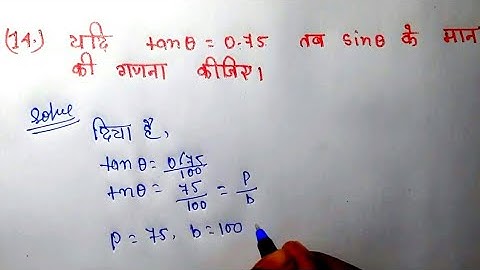 (14.) यदि tanθ = 0.75 तब sinθ के मान
की गणना कीजिए।
Solve
दिया है,
tanθ = 0.75/100
tnθ = 75/100 = p/b
p = 75, b = 100